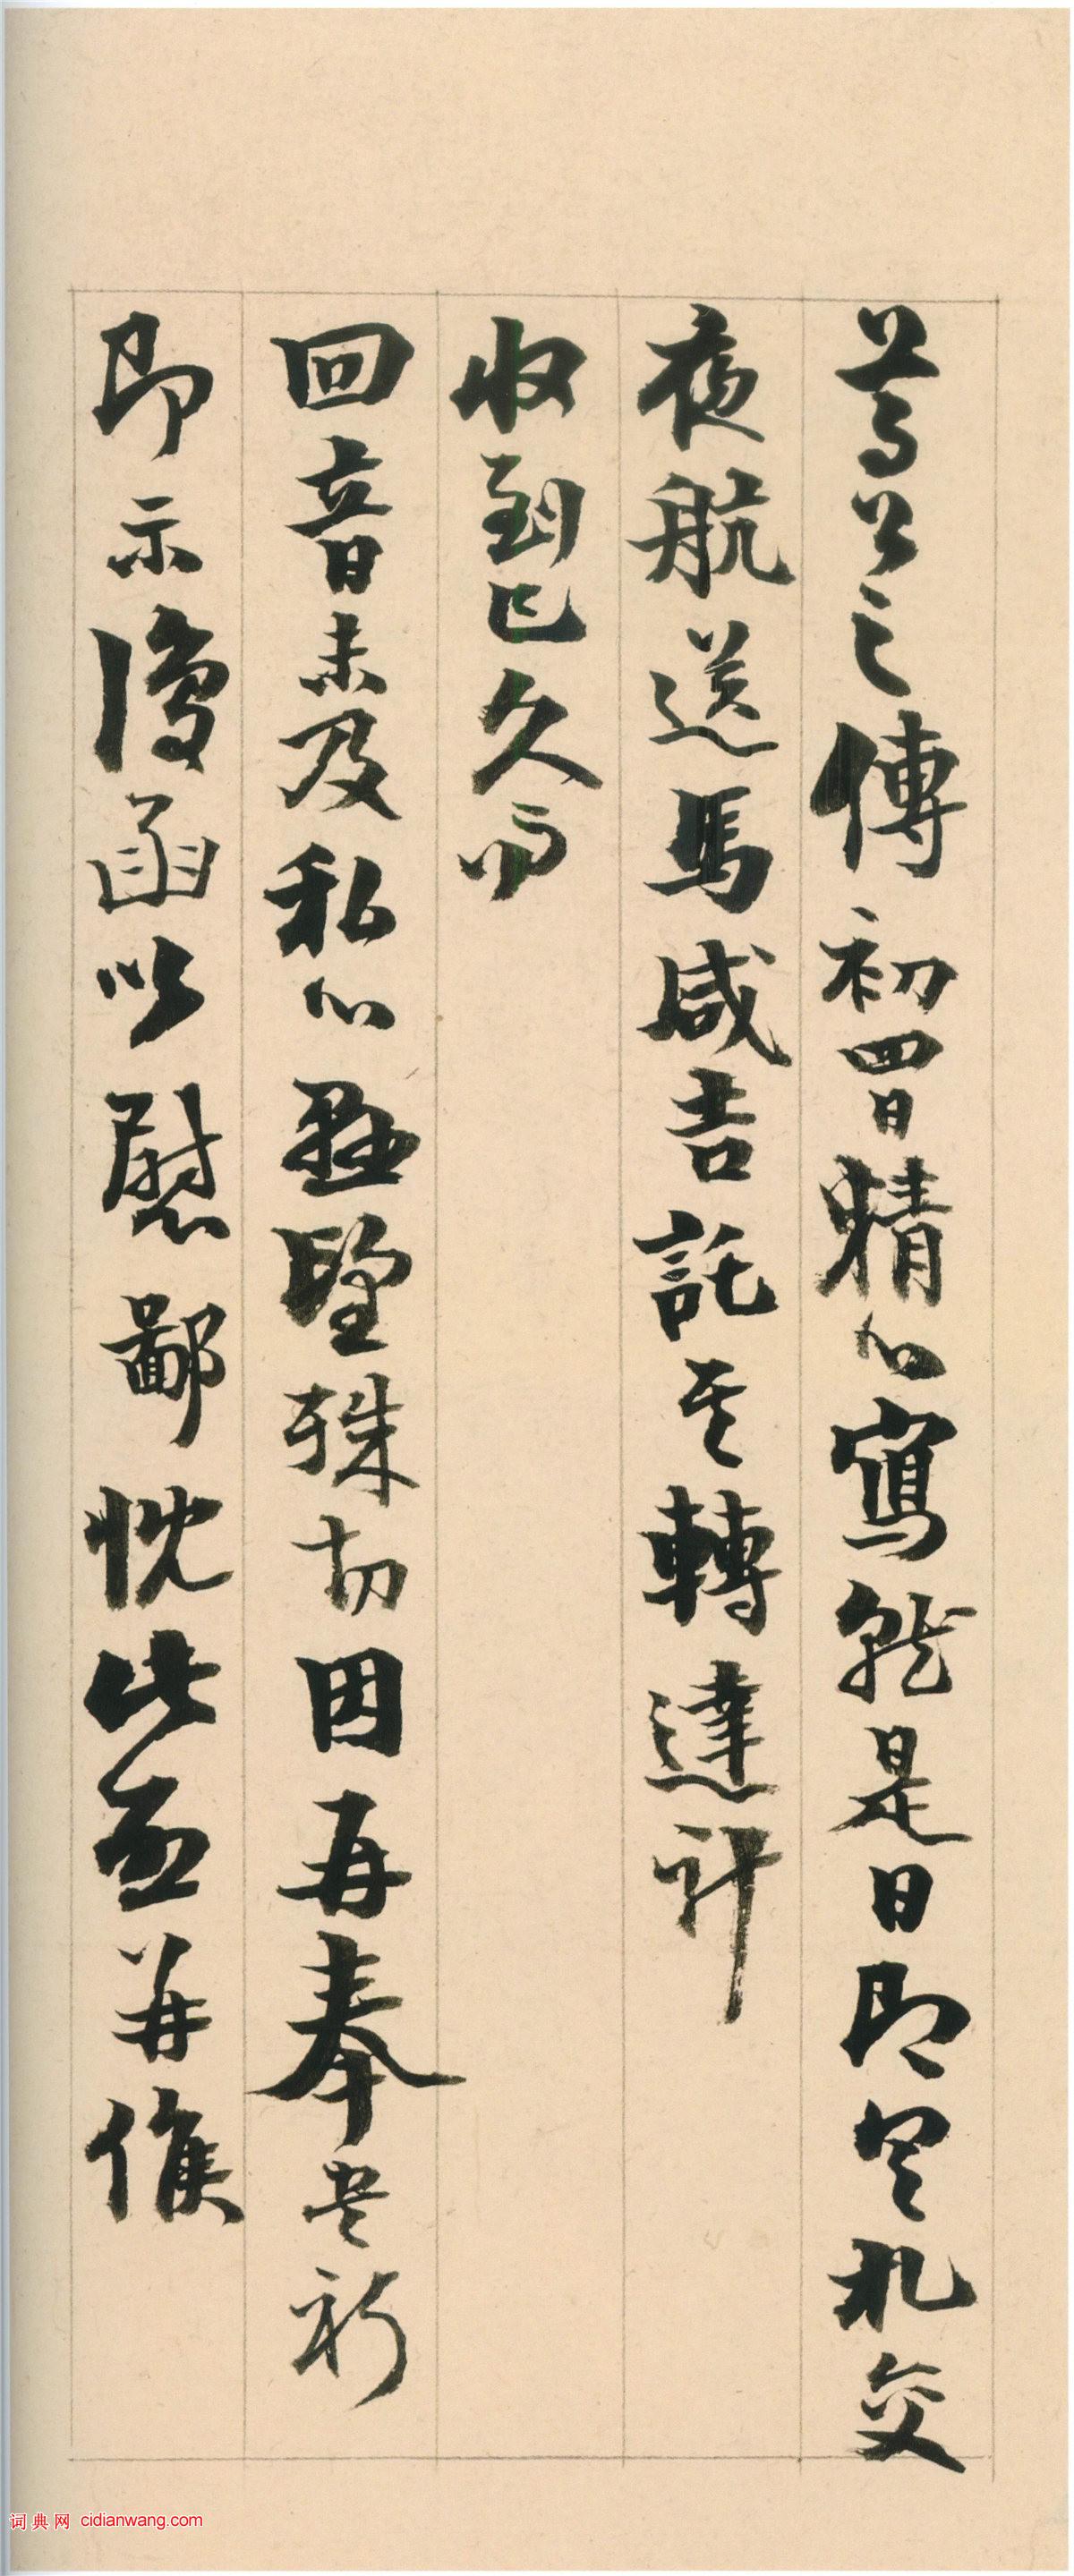 公之傳初四日精心寫就是日即具札交
夜航送馬咸吉託其轉達計
收到已久而
回音未及私心懸望殊切因再奉書祈
即示復函以慰鄙忱此亟并候
词典网 cidianwang.com